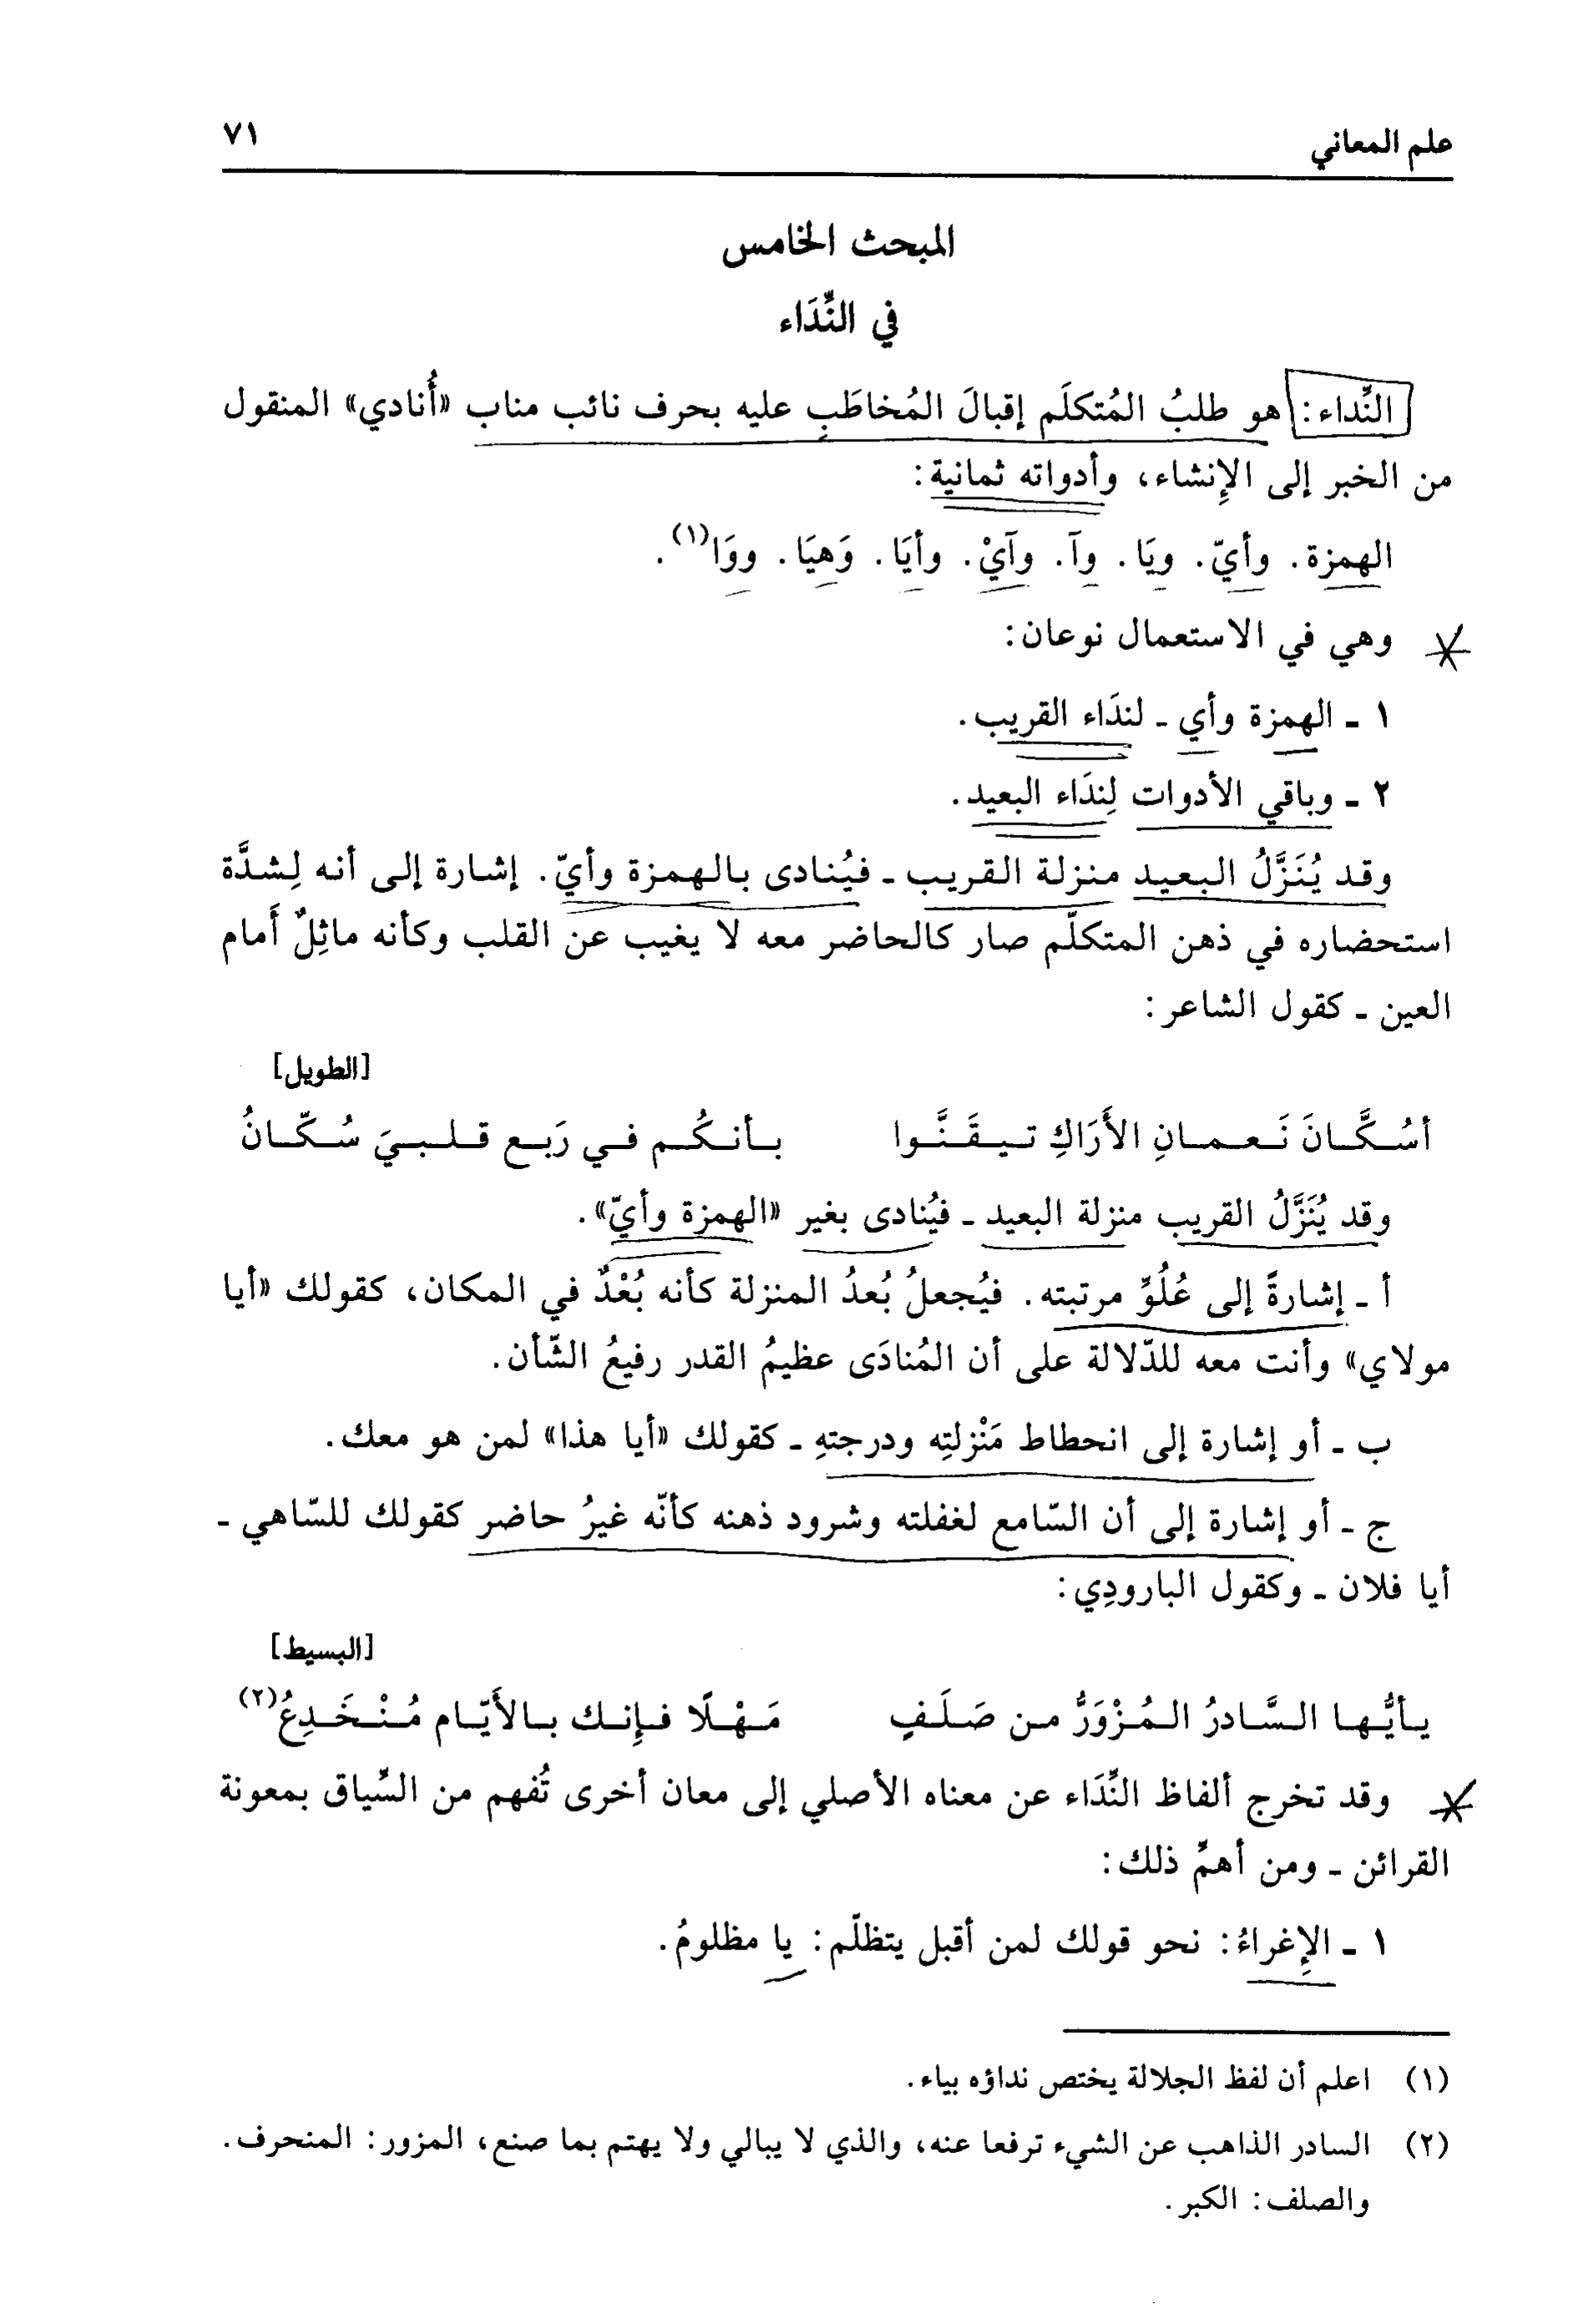 علم المعاني ٧١
المبحث الخامس
في النِّدَاء
النِّداء: هو طلبُ المُتكلَم إقبالَ المُخاطَبِ عليه بحرف نائب مناب «أُنادي» المنقول
من الخبر إلى الإِنشاء، وأدواته ثمانية:
الهمزة. وأيّ. ويَا. وآ. وآيْ. وأيَا. وَهيَا. ووَا(١).
وهي في الاستعمال نوعان:
١ ـ الهمزة وأي ـ لندَاء القريب.
٢ ـ وباقي الأدوات لِندَاء البعيد.
وقد يُنَزَّلُ البعيد منزلة القريب ـ فيُنادى بالهمزة وأيّ. إشارة إلى أنه لِشدَّة
استحضاره في ذهن المتكلّم صار كالحاضر معه لا يغيب عن القلب وكأنه ماثِلٌ أَمام
العين ـ كقول الشاعر:
[الطويل]
أسُكَّانَ نَعمانِ الأَرَاكِ تيقَنَّوا بأنكُم في رَبع قلبيَ سُكّانُ
وقد يُنَزَّلُ القريب منزلة البعيد ـ فيُنادى بغير «الهمزة وأيّ».
أ ـ إشارةً إلى عُلُوِّ مرتبته. فيُجعلُ بُعدُ المنزلة كأنه بُعْدٌ في المكان، كقولك «أيا
مولاي» وأنت معه للدّلالة على أن المُنادَى عظيمُ القدر رفيعُ الشّأن.
ب ـ أو إشارة إلى انحطاط مَنْزلتِه ودرجتهِ ـ كقولك «أيا هذا» لمن هو معك.
ج ـ أو إشارة إلى أن السّامع لغفلته وشرود ذهنه كأنّه غيرُ حاضر كقولك للسّاهي ـ
أيا فلان ـ وكقول البارودِي:
[البسيط]
يأيُّها السَّادرُ المُزْوَرُّ من صَلَفٍ مَهْلًا فإِنك بالأَيّام مُنْخَدِعُ(٢)
وقد تخرج ألفاظ النِّدَاء عن معناه الأصلي إلى معان أخرى تُفهم من السِّياق بمعونة
القرائن ـ ومن أهمِّ ذلك:
١ ـ الإِغراءُ: نحو قولك لمن أقبل يتظلّم: يا مظلومُ.
(١) اعلم أن لفظ الجلالة يختص نداؤه بياء.
(٢) السادر الذاهب عن الشيء ترفعا عنه، والذي لا يبالي ولا يهتم بما صنع، المزور: المنحرف.
والصلف: الكبر.